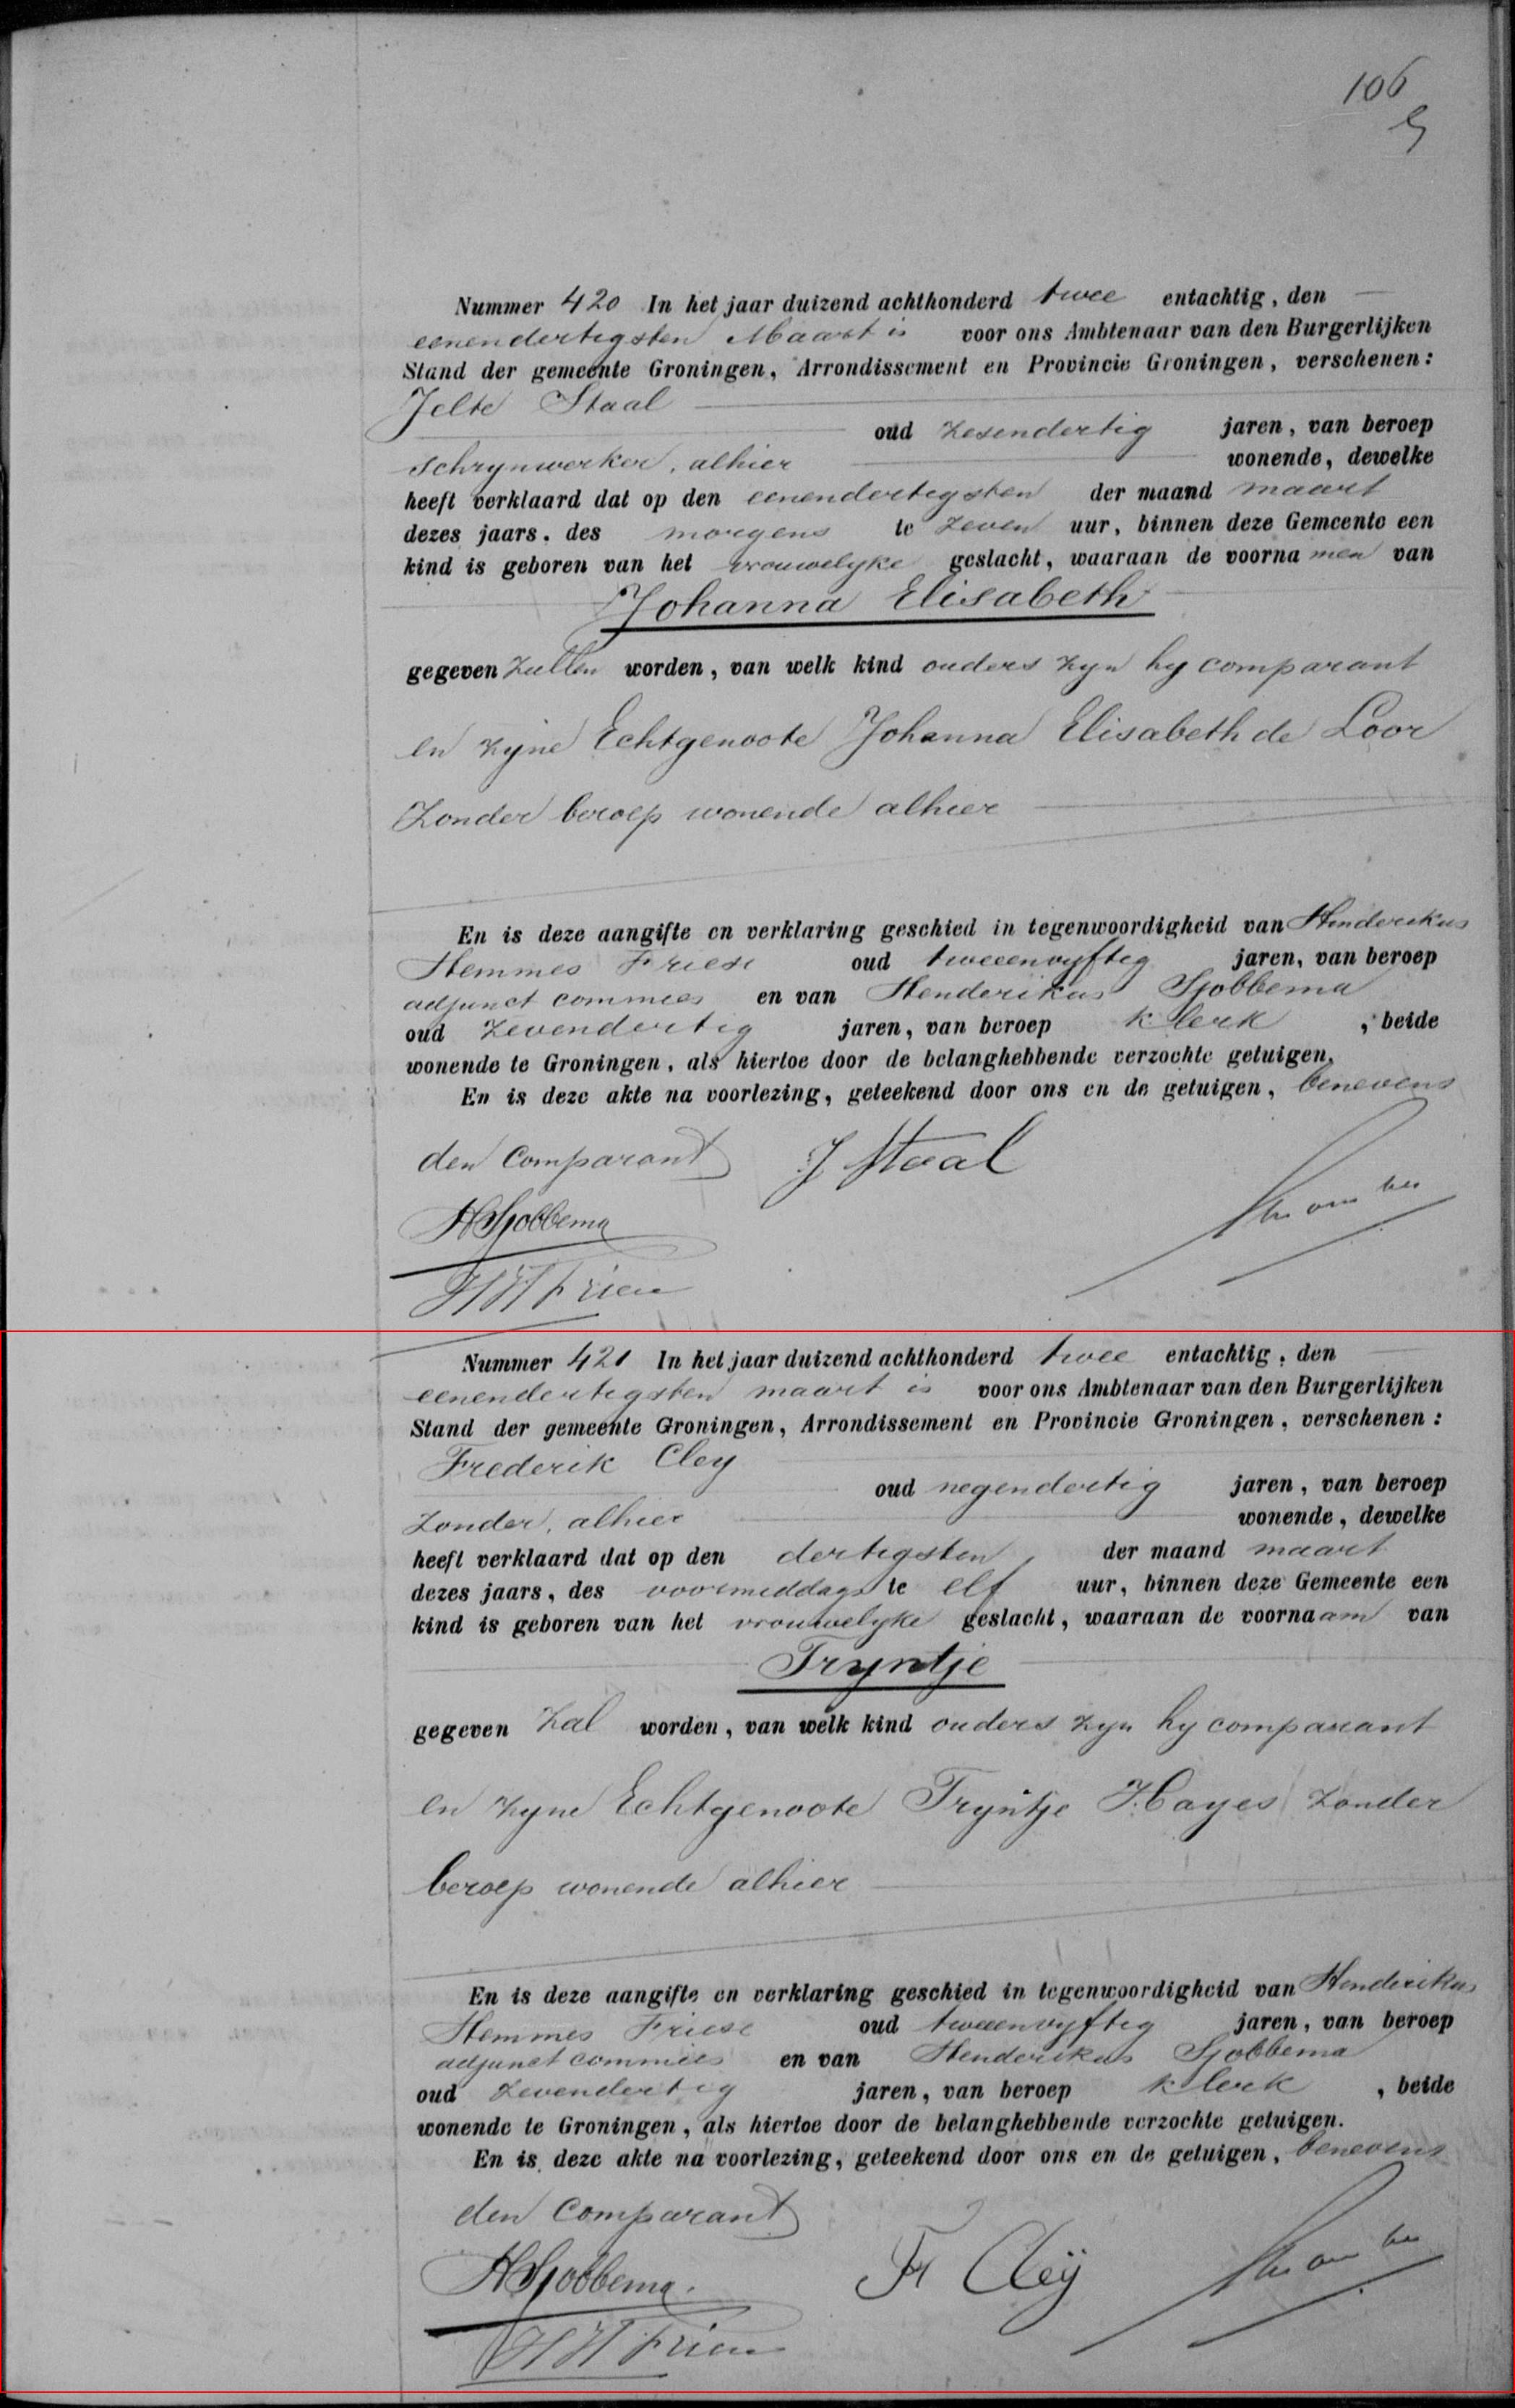 106
Nummer 420 In het jaar duizend achthonderd twee entachtig, den
eenendertigsten Maart is voor ons Ambtenaar van den Burgerlijken
Stand der gemeente Groningen, Arrondissement en Provincie Groningen, verschenen:
Jelte Staal
oud zesendertig jaren, van beroep
schrynwerker, alhier wonende, dewelke
heeft verklaard dat op den eenendertigsten der maand maart
dezes jaars, des morgens te zeven uur, binnen deze Gemeente een
kind is geboren van het vrouwelyke geslacht, waaraan de voornamen van
Johanna Elisabeth
gegeven zullen worden, van welk kind ouders zyn hy comparant
en zyne Echtgenoote Johanna Elisabeth de Loor
Zonder beroep wonende alhier
En is deze aangifte en verklaring geschied in tegenwoordigheid van Henderikus
Hemmes Friese oud tweeenvyftig jaren, van beroep
adjunct commies en van Henderikus Sjobbema
oud zevendertig jaren, van beroep klerk, beide
wonende te Groningen, als hiertoe door de belanghebbende verzochte getuigen,
En is deze akte na voorlezing, geteekend door ons en de getuigen, benevens
den Comparant J Staal
HSjobbema
HHFriese
Nummer 421 In het jaar duizend achthonderd twee entachtig, den
eenendertigsten maart is voor ons Ambtenaar van den Burgerlijken
Stand der gemeente Groningen, Arrondissement en Provincie Groningen, verschenen:
Frederik Cley
oud negendertig jaren, van beroep
Zonder, alhier wonende, dewelke
heeft verklaard dat op den dertigsten der maand maart
dezes jaars, des voormiddags te elf uur, binnen deze Gemeente een
kind is geboren van het vrouwelyke geslacht, waaraan de voornaam van
Tryntje
gegeven zal worden, van welk kind ouders zyn hy comparant
en zyne Echtgenoote Tryntje Hayes zonder
beroep wonende alhier
En is deze aangifte en verklaring geschied in tegenwoordigheid van Henderikus
Hemmes Friese oud tweeenvyftig jaren, van beroep
adjunct commies en van Henderikus Sjobbema
oud zevendertig jaren, van beroep klerk, beide
wonende te Groningen, als hiertoe door de belanghebbende verzochte getuigen.
En is deze akte na voorlezing, geteekend door ons en de getuigen, benevens
den Comparant
HSjobbema. Fr Cleÿ
HHFriese